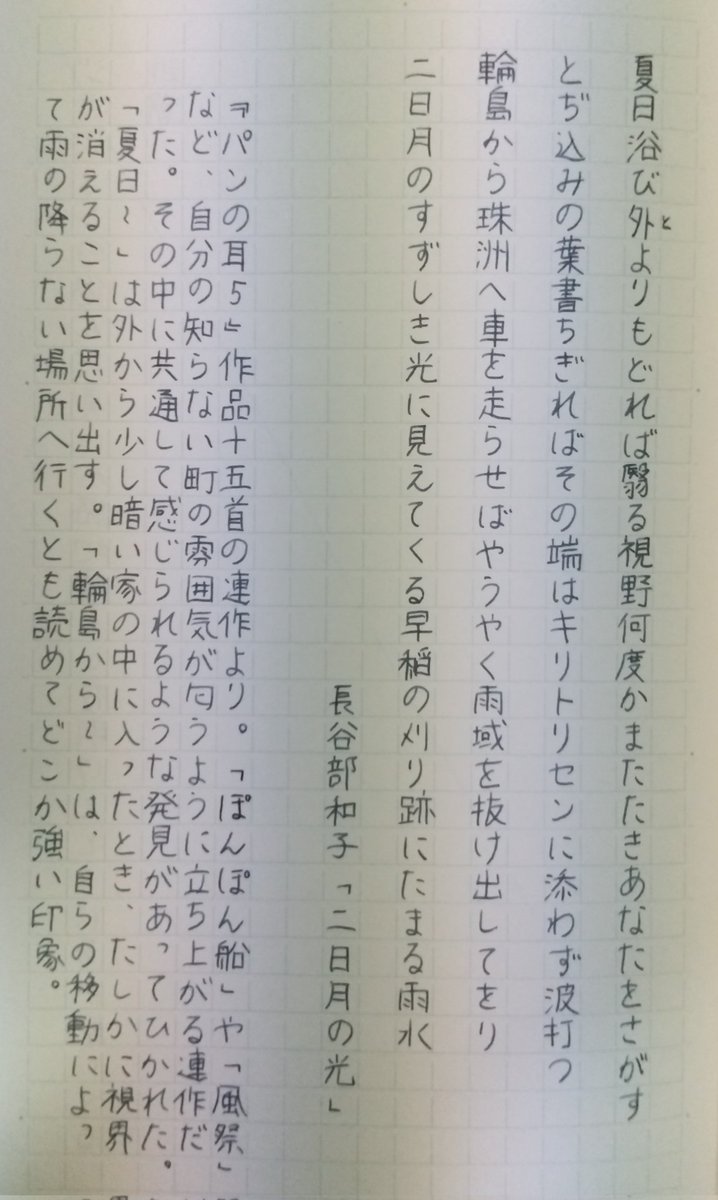 夏日浴び外よりもどれば翳る視野何度かまたたきあなたをさがす
と
とぢ込みの葉書ちぎればその端はキリトリセンに添わず波打つ
輪島から珠洲へ車を走らせばやうやく雨域を抜け出してをり
二日月のすずしき光に見えてくる早稲の刈り跡にたまる雨水
長谷部和子「二日月の光」
『パンの耳5』作品十五首の連作より。「ぽんぽん船」や「風祭」
など、自分の知らない町の雰囲気が匂うように立ち上がる連作だ
った。その中に共通して感じられるような発見があってひかれた。
「夏日～」は外から少し暗い家の中に入ったとき、たしかに視界
が消えることを思い出す。「輪島から～」は、自らの移動によっ
て雨の降らない場所へ行くとも読めてどこか強い印象。